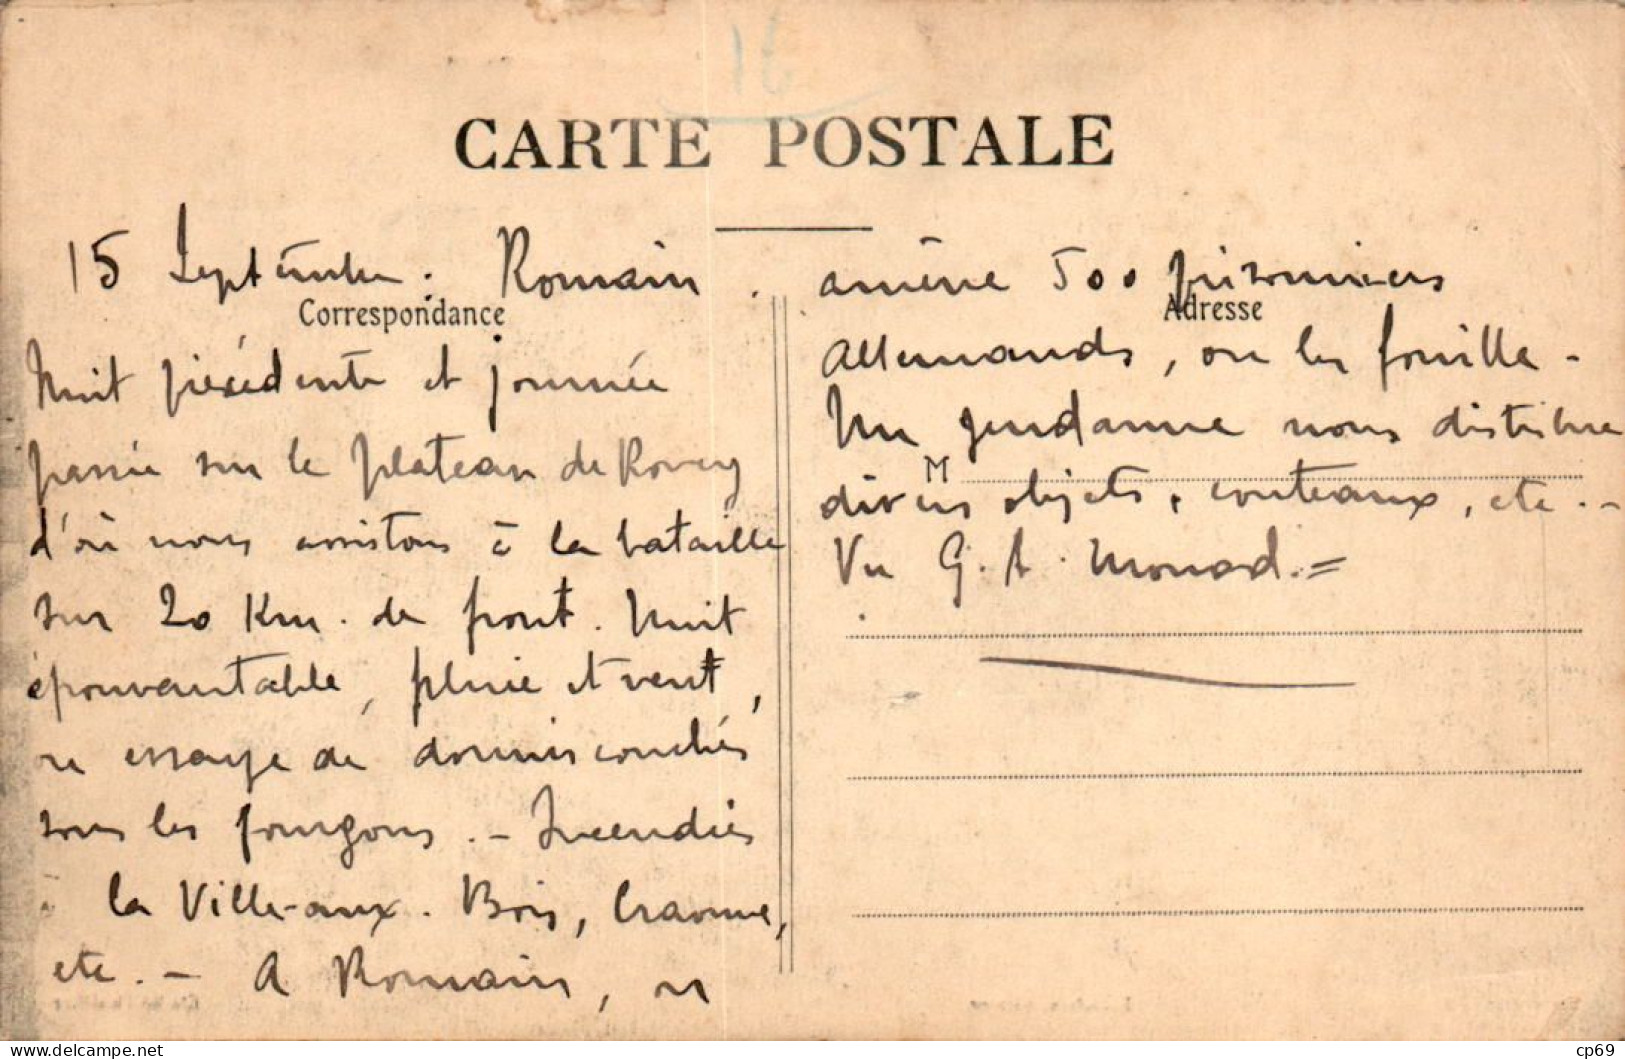 16
CARTE POSTALE
15 Septembre. Romain.
Correspondance
Nuit précédente et journée
passée sur le plateau de Roucy
d'où nous assistons à la bataille
sur 20 Km. de front. Nuit
épouvantable, pluie et vent,
on essaye de dormir couchés
sous les fourgons. - Incendies
à la Ville-aux-Bois, Craonne,
etc. - A Romain, on
amène 500 prisonniers
Adresse
Allemands, on les fouille -
Un gendarme nous distribue
M
divers objets, couteaux, etc. -
Vu G. A. Monod. =
cp69
www.delcampe.net